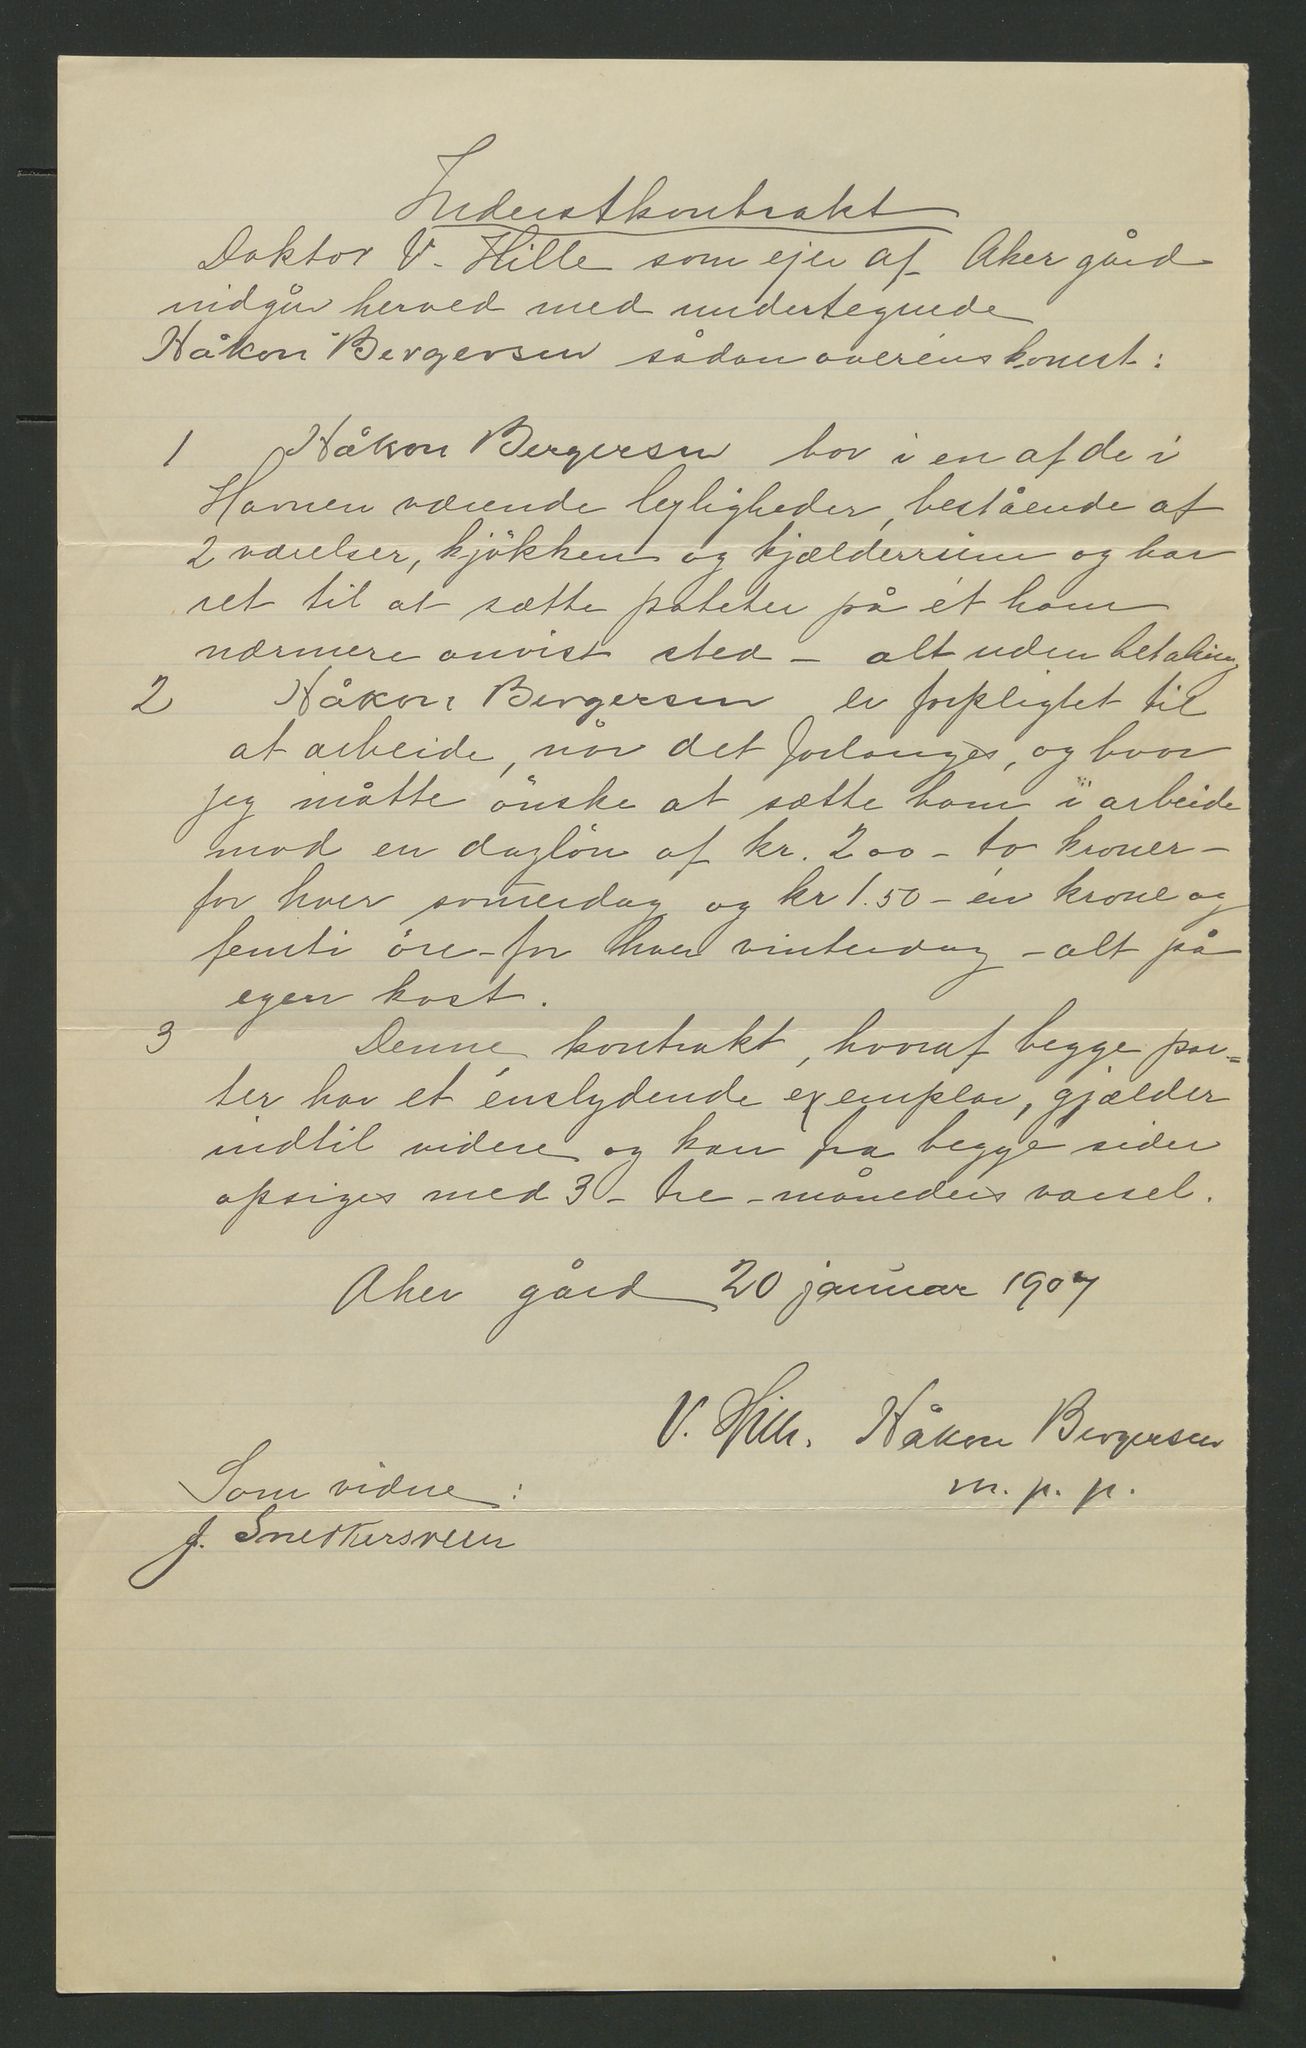 Inderstkontrakt
Doktor V. Hille som ejer af Aker gård
indgår herved med undertegnede
Håkon Bergersen sådan overénskomst:
1 Håkon Bergersen bor i en af de i
Havnen værende lejligheder, bestående af
2 værelser, kjökken og kjælderrum og har
ret til at sætte poteter på ét ham
nærmere anvist sted - alt uden betaling
2 Håkon Bergersen er forpligtet til
at arbeide, når det forlanges, og hvor
jeg måtte önske at sætte ham i arbeide
mod en daglön af kr. 2 00 - to kroner -
for hver somerdag og kr 1.50 - én krone og
femti öre - for hver vinterdag - alt på
egen kost.
3 Denne kontrakt, hvoraf begge par=
ter har et énslydende exemplar, gjælder
indtil videre og kan fra begge sider
opsiges med 3 - tre - måneders varsel.
Aker gård 20 januar 1907
V. Hille. Håkon Bergersen
m. p. p.
Som vidne:
J. Snekkersveen